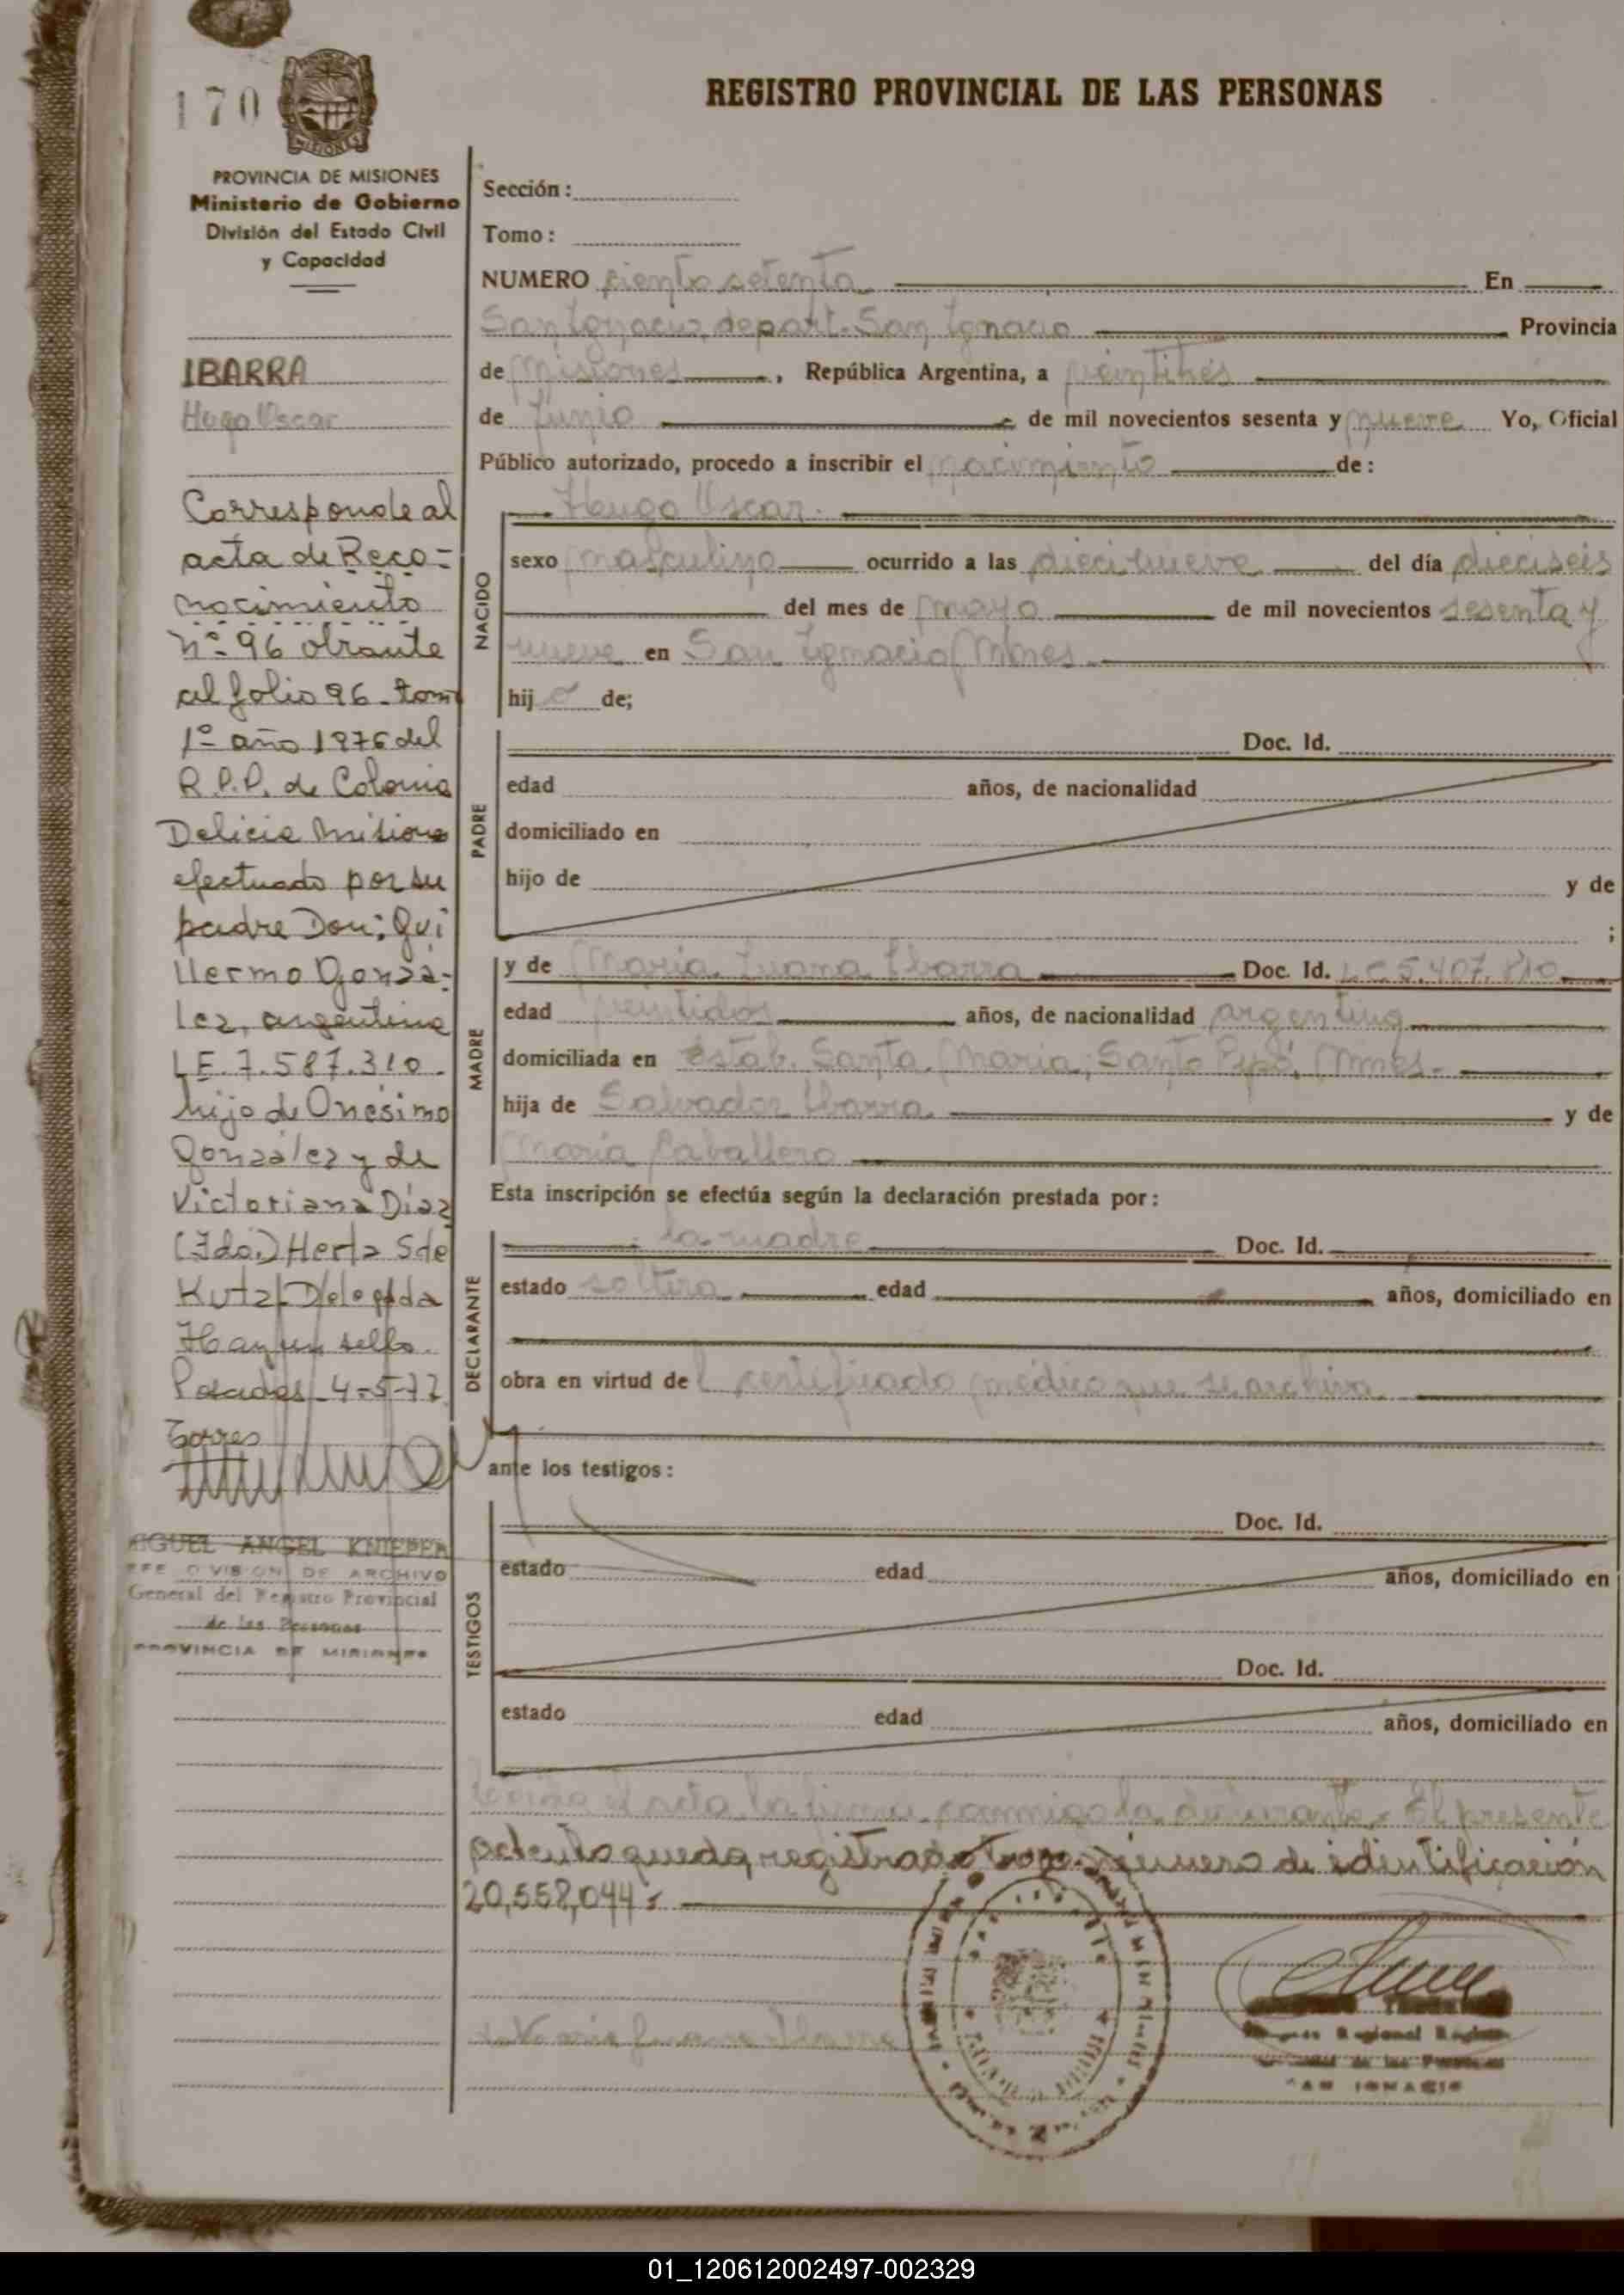 170
MISIONES
PROVINCIA DE MISIONES
Ministerio de Gobierno
División del Estado Civil
y Capacidad
IBARRA
Hugo Oscar
Corresponde al
acta de Reco-
nocimiento
nº 96 obrante
al folio 96 - tomo
1º año 1976 del
R.P.P. de Colonia
Delicia Misiones
efectuado por su
padre Don: Gui
llermo Gonzá-
lez, argentino
L.E. 7.587.310.
hijo de Onesimo
González y de
Victoriana Díaz
(Fdo.) Herta S de
Kutz Delegada
Hay un sello.
Posadas 4-5-77
Torres
MIGUEL ANGEL KNIEPPA
JEFE DIVISION DE ARCHIVO
General del Registro Provincial
de las Personas
PROVINCIA DE MISIONES
REGISTRO PROVINCIAL DE LAS PERSONAS
Sección:
Tomo:
NUMERO ciento setenta En
San Ignacio, depart. San Ignacio Provincia
de Misiones, República Argentina, a veintitrés
de Junio de mil novecientos sesenta y nueve Yo, Oficial
Público autorizado, procedo a inscribir el nacimiento de:
NACIDO
Hugo Oscar.
sexo masculino ocurrido a las diecinueve del día dieciseis
del mes de mayo de mil novecientos sesenta y
nueve en San Ignacio, Mnes.
hijo de;
PADRE
Doc. Id.
edad años, de nacionalidad
domiciliado en
hijo de y de
;
MADRE
y de María Juana Ibarra Doc. Id. L.C. 5.407.810
edad veintidos años, de nacionalidad argentina
domiciliada en estab. Santa María; Santo Pipó, Mnes.
hija de Salvador Ibarra y de
María Caballero
Esta inscripción se efectúa según la declaración prestada por:
DECLARANTE
la madre Doc. Id.
estado soltera edad años, domiciliado en
obra en virtud del certificado médico que se archiva
ante los testigos:
TESTIGOS
Doc. Id.
estado edad años, domiciliado en
Doc. Id.
estado edad años, domiciliado en
Leída el acta la firma conmigo la declarante. El presente
queda registrado bajo número de identificación
20,558,044.
María Juana Ibarra
SAN IGNACIO
01_120612002497-002329